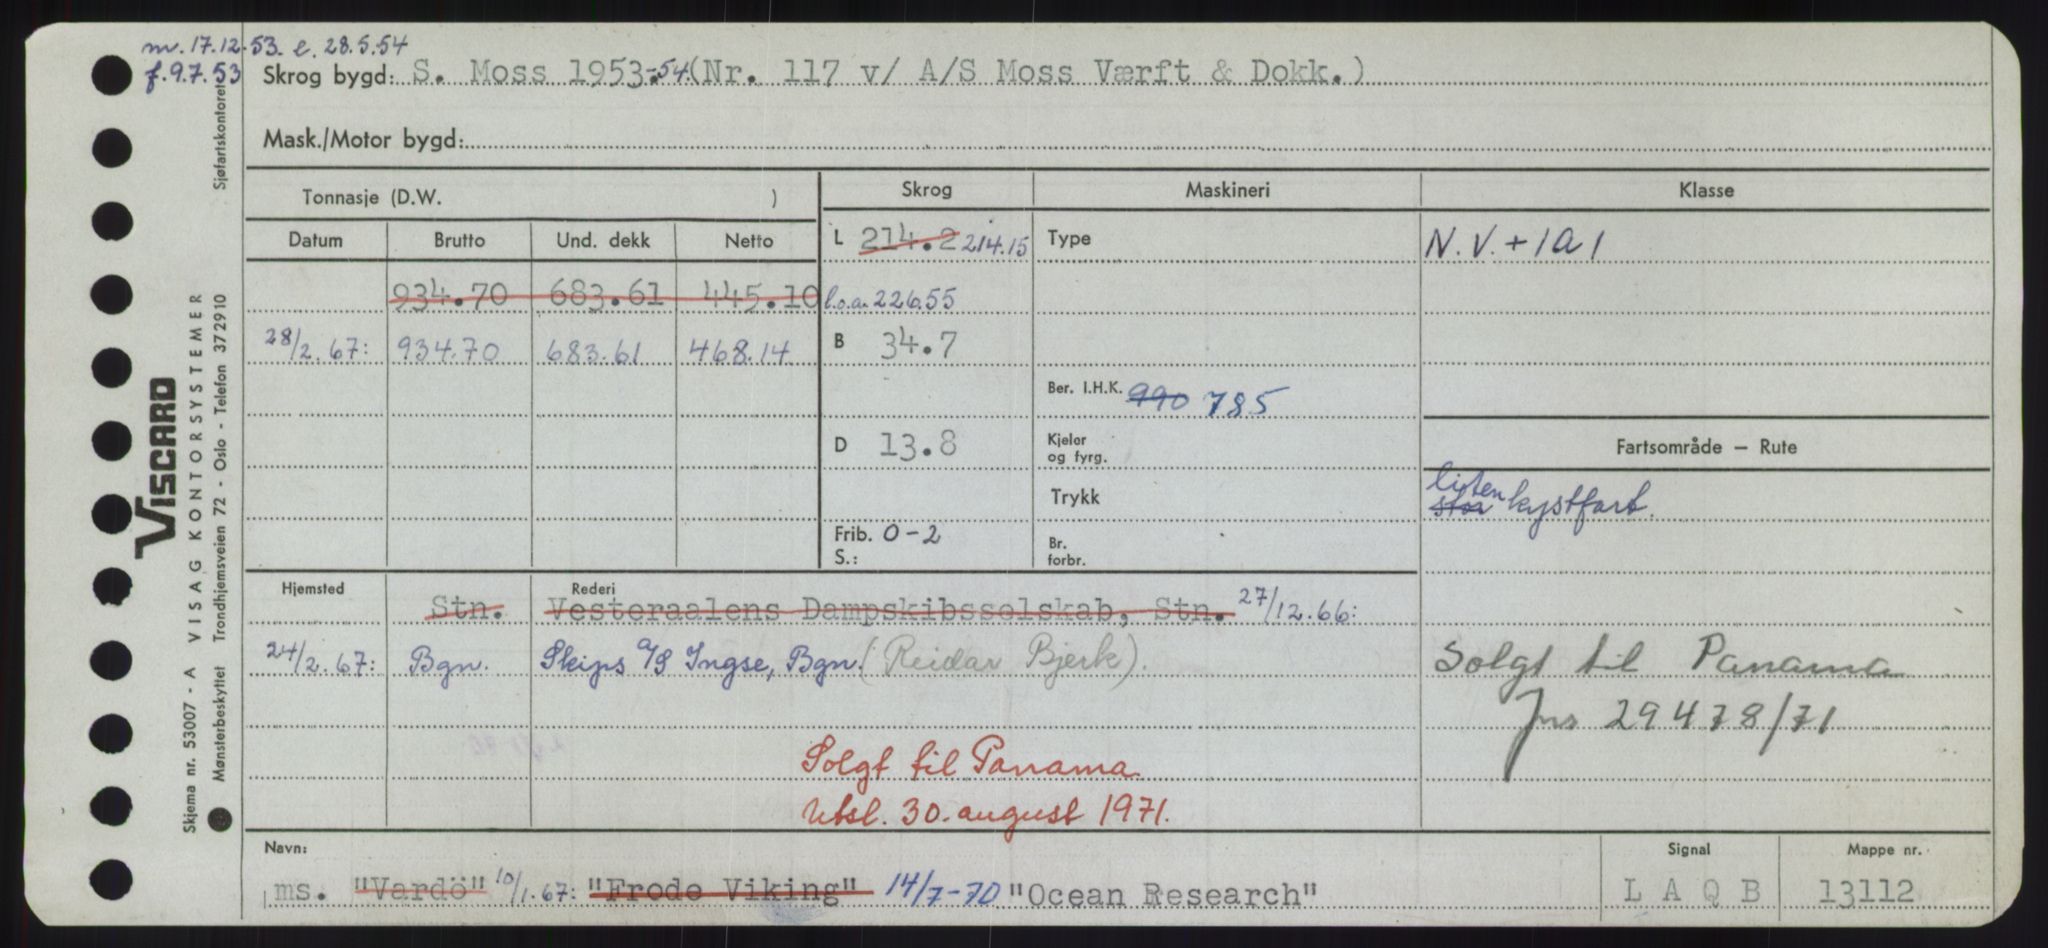 m. 17.12.53. e. 28.5.54
f. 9.7.53 Skrog bygd: S. Moss 1953-54. (Nr. 117 v/ A/S Moss Værft & Dokk.)
Mask./Motor bygd:
Tonnasje (D.W. ) Skrog Maskineri Klasse
Datum Brutto Und. dekk Netto L 214.2 214.15 Type N.V. + 1A1
934.70 683.61 445.10 l.o.a. 226.55
28/2.67: 934.70 683.61 468.14 B 34.7
Ber. I.H.K. 990 785
D 13.8 Kjeler og fyrg. Fartsområde — Rute
Trykk liten stor kystfart.
Frib. 0-2
S.: Br. forbr.
Hjemsted Rederi
Stn. Vesteraalens Dampskibsselskab, Stn. 27/12.66:
24/2.67: Bgn. Skips A/S Ingse, Bgn. (Reidar Bjerk). Solgt til Panama
Jns 29478/71
Solgt til Panama
Utsl. 30. august 1971.
Navn: Signal Mappe nr.
ms. "Vardö" 10/1.67: "Frode Viking" 14/7-70 "Ocean Research" L A Q B 13112
VISCARD
Skjema nr. 53007 - A VISAG KONTORSYSTEMER
Mønsterbeskyttet Trondhjemsveien 72 - Oslo - Telefon 372910 Sjøfartskontoret